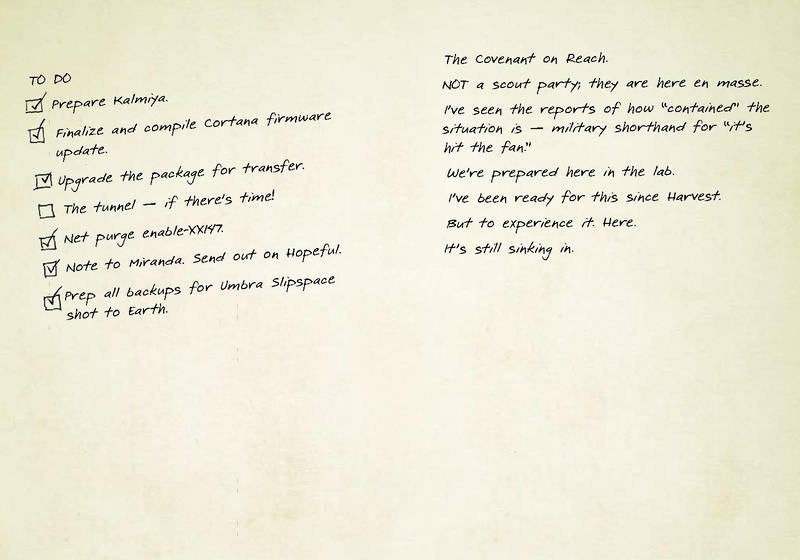 TO DO
Prepare Kalmiya.
Finalize and compile Cortana firmware
update.
Upgrade the package for transfer.
The tunnel — if there's time!
Net purge enable-XXI47.
Note to Miranda. Send out on Hopeful.
Prep all backups for Umbra Slipspace
shot to Earth.
The Covenant on Reach.
NOT a scout party; they are here en masse.
I've seen the reports of how "contained" the
situation is — military shorthand for "it's
hit the fan."
We're prepared here in the lab.
I've been ready for this since Harvest.
But to experience it. Here.
It's still sinking in.